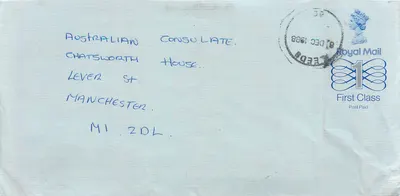 AUSTRALIAN CONSULATE.
CHATSWORTH HOUSE.
LEVER ST
MANCHESTER.
M1 2DL.
LEEDS
DEC 1988
Royal Mail
1
First Class
Post Paid